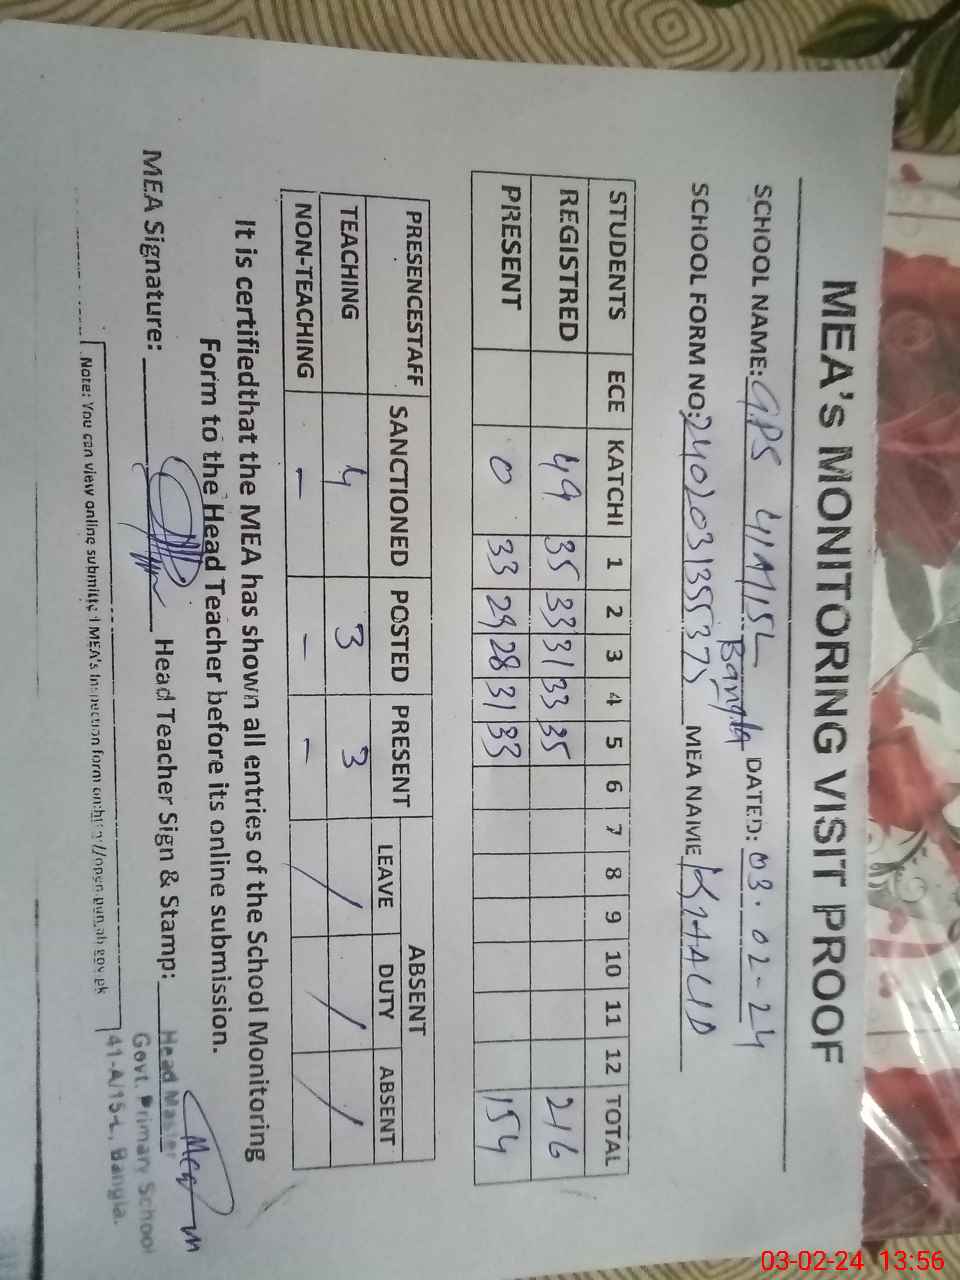 MEA's MONITORING VISIT PROOF
SCHOOL NAME: GPS 41A/15L Bangla DATED: 03-02-24
SCHOOL FORM NO: MEA NAME KHALID
STUDENTS ECE KATCHI 1 2 3 4 5 6 7 8 9 10 11 12 TOTAL
REGISTRED 49 35 33 31 33 35 216
PRESENT 0 33 29 28 31 33 154
PRESENCESTAFF SANCTIONED POSTED PRESENT ABSENT
LEAVE DUTY ABSENT
TEACHING 4 3 3 / / /
NON-TEACHING - - -
It is certifiedthat the MEA has shown all entries of the School Monitoring
Form to the Head Teacher before its online submission.
MEA Signature: Head Teacher Sign & Stamp:
Head Master
Govt. Primary School
41-A/15-L, Bangla.
Note: You can view online submitted MEA's Inspection form on:http://open.punjab.gov.pk
03-02-24 13:56